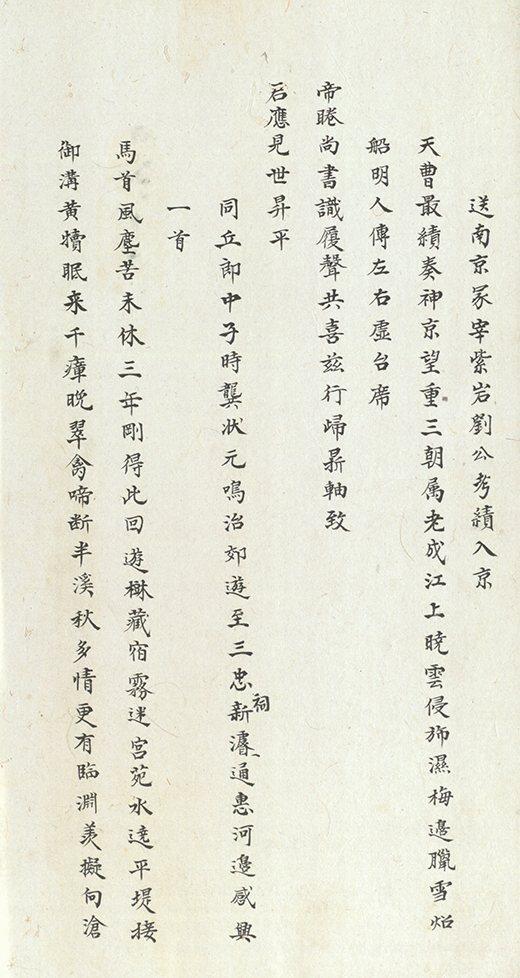 送南京冢宰紫岩劉公考績入京
天曹最績奏神京望重三朝属老成江上曉雲侵斾濕梅邊臘雪炤
船明人傳左右虛台席
帝睠尚書識履聲共喜茲行歸鼎軸致
君應見世昇平
同丘郎中子時龔狀元鳴治郊遊至三忠祠新濬通惠河邊感興
一首
馬首風塵苦未休三年剛得此回遊樹藏宿霧迷宮苑水遶平堤接
御溝黃犢眠来千嶂晚翠禽啼断半溪秋多情更有臨淵羡擬向滄